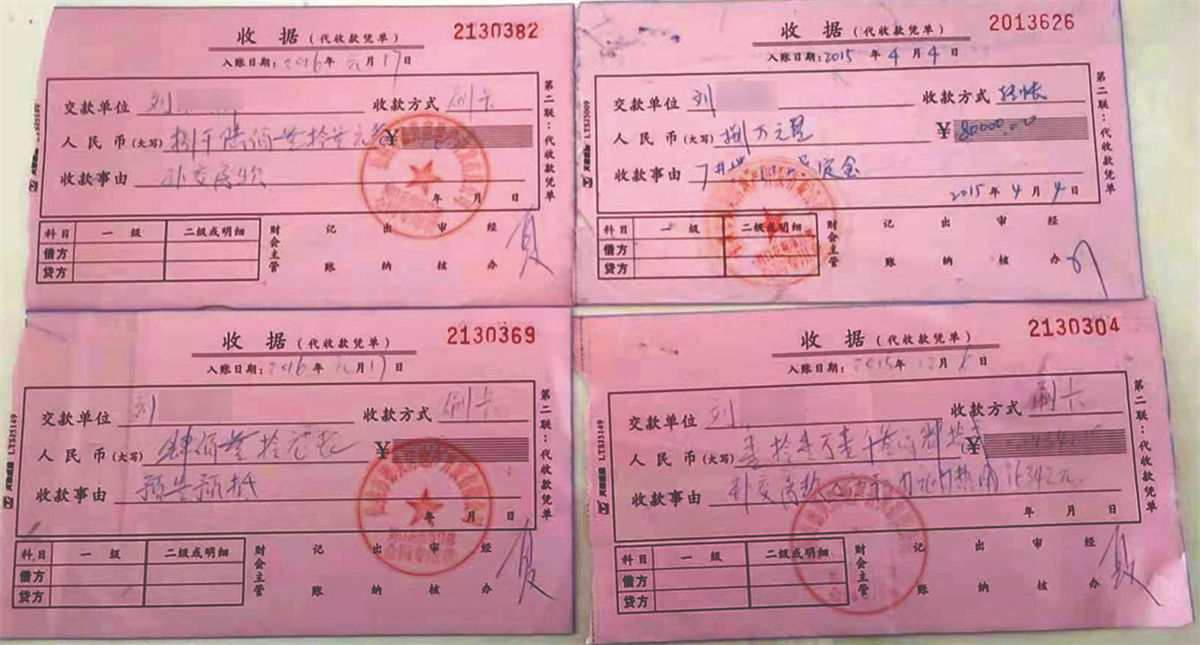 收 据 (代收款凭单) 2130382
入账日期:2016年元月17日
交款单位 刘 收款方式 刷卡
人民币(大写) 捌千陆佰壹拾 元 ¥
收款事由 补交房款
年 月 日
科目 一级 二级或明细
借方
贷方
财会主管 记账 出纳 审核 经办
第二联:代收款凭单
LTSJ5149
收 据 (代收款凭单) 2013626
入账日期:2015年4月4日
交款单位 刘 收款方式 转帐
人民币(大写) 捌万元整 ¥80000.00
收款事由 定金
2015年4月4日
科目 一级 二级或明细
借方
贷方
财会主管 记账 出纳 审核 经办
第二联:代收款凭单
LTSJ5009
收 据 (代收款凭单) 2130369
入账日期:2016年元月17日
交款单位 刘 收款方式 刷卡
人民币(大写) 肆佰 拾 ¥
收款事由 预告预抵
年 月 日
科目 一级 二级或明细
借方
贷方
财会主管 记账 出纳 审核 经办
第二联:代收款凭单
LTSJ5149
收 据 (代收款凭单) 2130304
入账日期:2015年12月6日
交款单位 刘 收款方式 刷卡
人民币(大写) 壹拾 万壹千 ¥
收款事由 补交房款 元
年 月 日
科目 一级 二级或明细
借方
贷方
财会主管 记账 出纳 审核 经办
第二联:代收款凭单
LTSJ5149